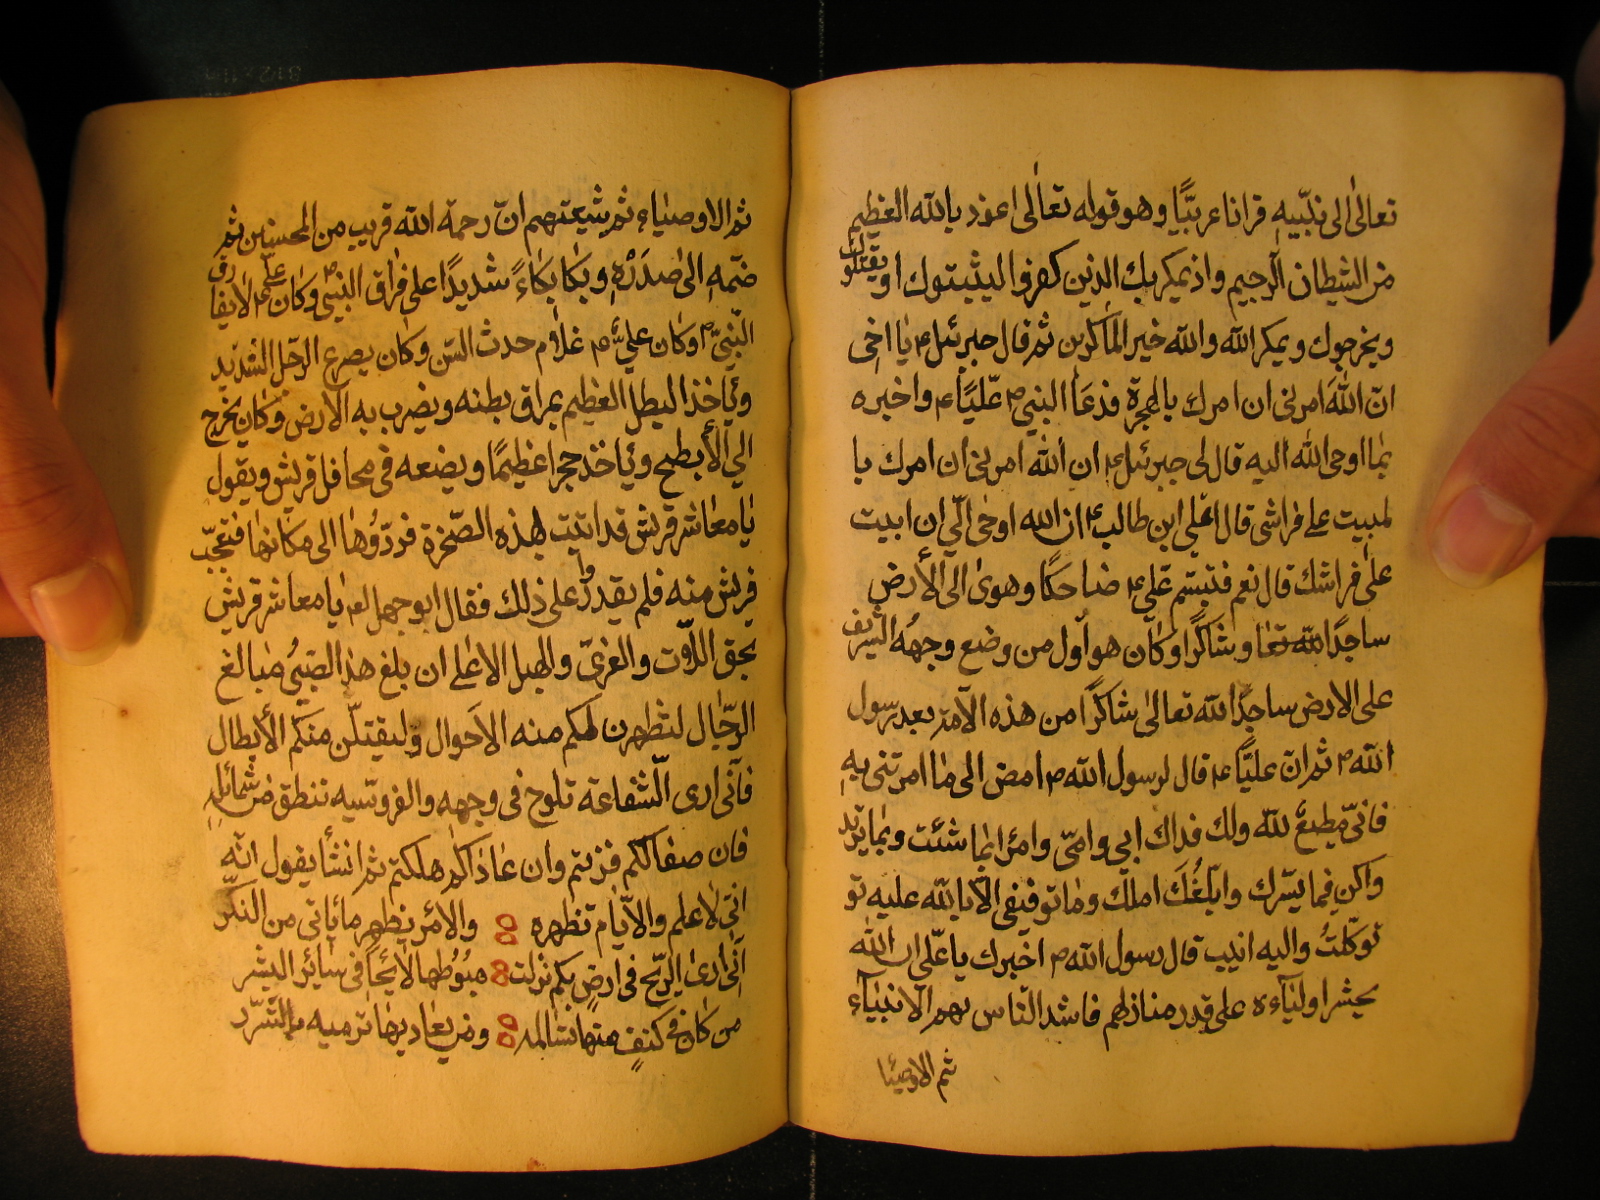 تعالى الى نبّيه قرانا عربيًّا وهو قوله تعالى اعوذ بالله العظيم
من الشيطان الرجيم واذ يمكر بك الذين كفروا ليثبتوك او يقتلوك
ويخرجوك ويمكر الله والله خير الماكرين ثم قال جبرئيل ع يا اخى
انّ الله امرنى ان امرك بالهجرة فدعا النبي ص عليًّا ع واخبره
بما اوحى الله اليه قال لى جبرئيل ع ان الله امرنى ان امرك با
لمبيت على فراشى قال على ابن طالب ع ان الله اوحى الّي ان ابيت
على فراشك قال نعم فتبسم علي ع ضاحكًا وهوى الى الأرض
ساجدًا لله تعا وشاكرًا وكان هو اول من وضع وجهه الشريف
على الارض ساجدًا لله تعالى شاكرًا من هذه الآمة بعد رسول
الله ص ثم انّ عليًّا ع قال لرسول الله ص امض الى ما امرتنى به
فانّى مطيعٌ لله ولك فداك ابي وامّى وامرُ بما شئت وبما يريد
واكن فيما يسّرك وابلّغُك املك وما توفيقى الّا بالله عليه تو
توكّلتُ واليه انيب قال رسول الله ص اخبرك يا علّى ان الله
يحشر اولياءه على قدر منازلهم فاشد النّاس بهم الانبياء
ثم الاوصيا
ثم الاوصياء ثم شيعتهم انّ رحمة الله قريب من المحسنين ثم
ضمّه الى صدره وبكا بكاءً شديدًا على فراق النبي ص وكان على ع لا يفارق
النّبيّ ص وكان عليٌّ ع غلام حدث السّن وكان يصرع الرّجل الشديد
وياخذ البطل العظيم بمراق بطنه ويضرب به الارض وكان يخرج
الي الأبطح وياخذ حجرا عظيمًا ويضعه فى محافل قريش ويقول
يا معاشر قريش قد اتيت بهذه الصّخرة فردّوها الى مكانها فتعجّب
قريش منه فلم يقدروا على ذلك فقال ابوجهل لع يا معاشر قريش
بحق اللّات والعزىّ والهبل الاعلى ان بلغ هذا الصّبيُ مبالغ
الرّجال لتظهرن لكم منه الاحوال وليقتلّن منكم الأبطال
فانّى ارى الشّفاعة تلوح فى وجهه والفروسّيه تنطق من شمائله
فان صفا لكم فزتم وان عاداكم هلكتم ثم انشأ يقول
انّى لاعلم والايّام تظهره والامر يظهر ما ياتى من النكر
انّى ارى الرّيح فى ارضٍ بكم نزلت في سائر البشر
من كان فى كنفٍ منها تسالمه ومن يعاديها ترميه بالشّرر